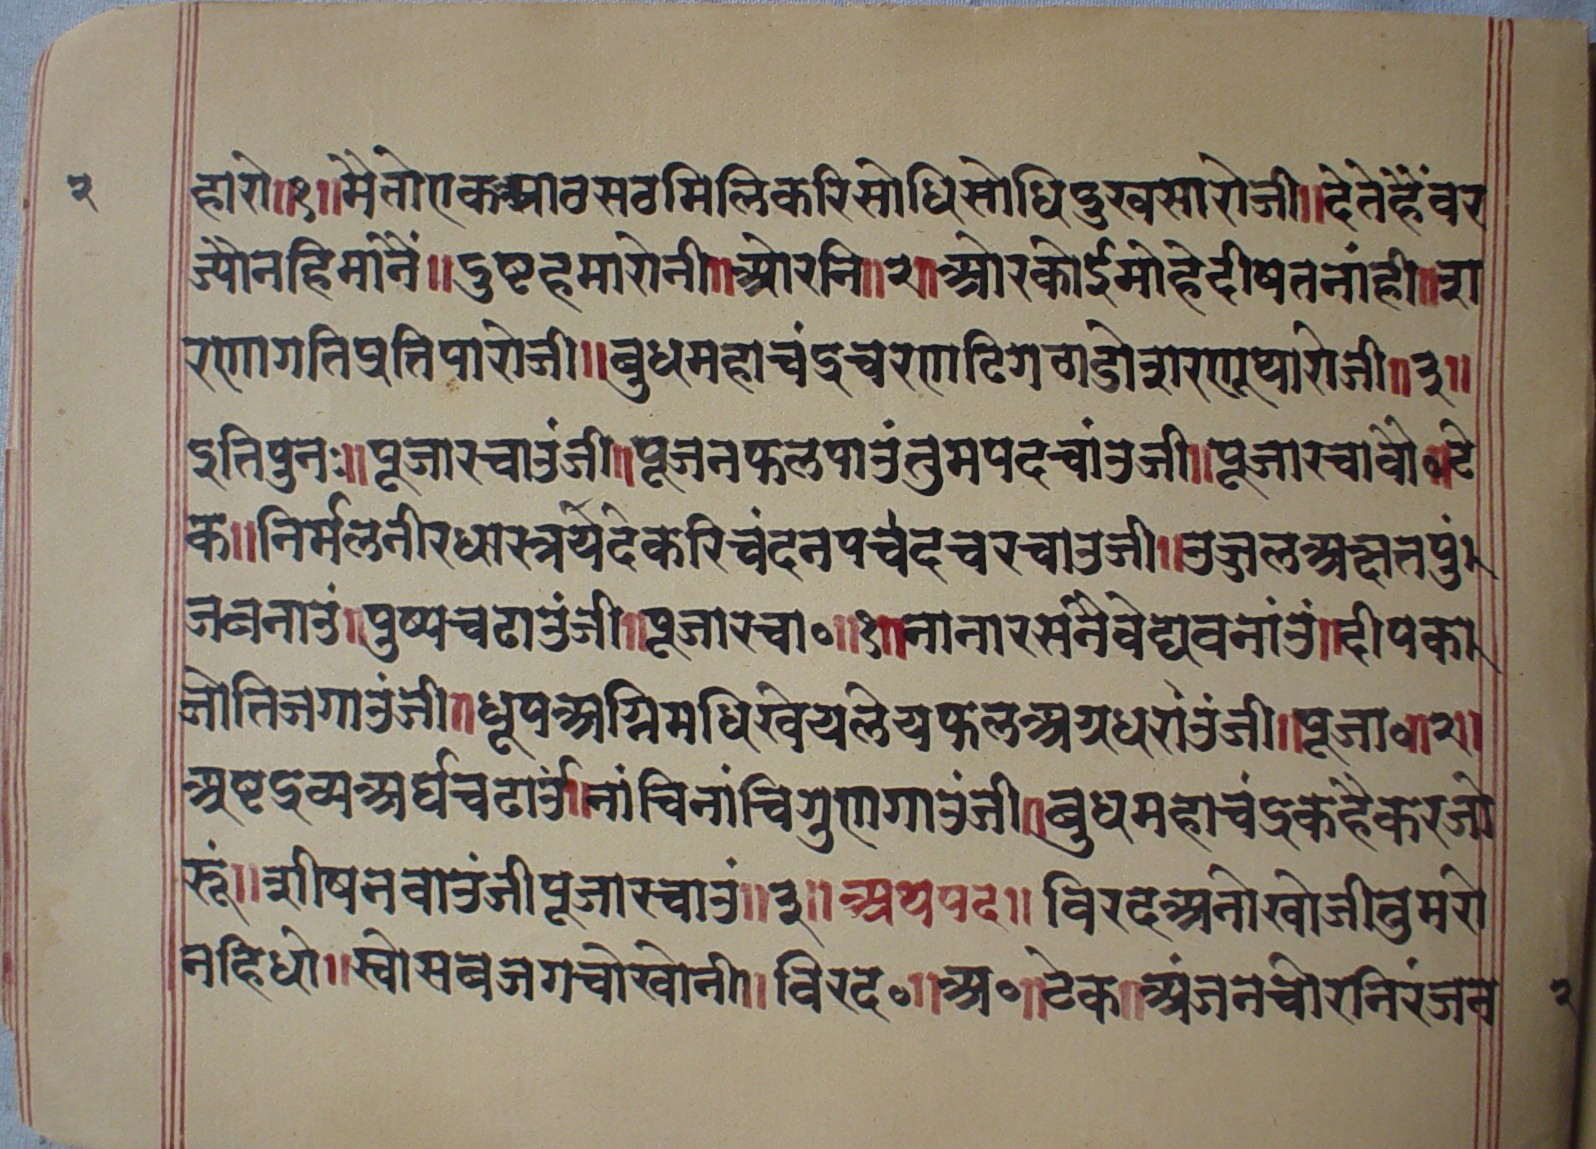 २
हारो॥१॥मैतोएकआठसठमिलिकरिसोधिसोधिदुखसारोजी॥देतेहैंवर
ज्यौनहिमांनैं॥दुष्टहमारोनी॥ओरनि॥२॥ओरकोईमोहेदीषतनांही॥शा
रणागतिप्रतिपारोजी॥बुधमहाचंद्रचरणढिगठाडोशरणूथारोजी॥३॥
इतिपुनः॥पूजारचाउंजी॥पूजनफलपाउंतुमपदचांउजी॥पूजारचावौ०टे
क॥निर्मलनीरधारत्रयदेकरिचंदनपर्चदचरचाउजी॥उज्जलअक्षतपुं
जबनाउं॥पुष्पचढाउंजी॥पूजारचा०॥१॥नानारसनैवेद्यवनांउं॥दीपका
जोतिजगाउंजी॥धूपअग्निमधिखेयलेयफलअग्रधरांउंजी॥पूजा०॥२॥
अष्टद्रव्यअर्घचढाउं॥नांचिनांचिगुणगाउंजी॥बुधमहाचंद्रकहैकरजो
रूं॥शीषनवाउंजीपूजारचाउं॥३॥अथपद॥विरदअनोखोजीतुमरो
नहिधो॥खोसबजगचोखोनी॥विरद०॥अ०॥टेक॥अंजनचोरनिरंजन
२